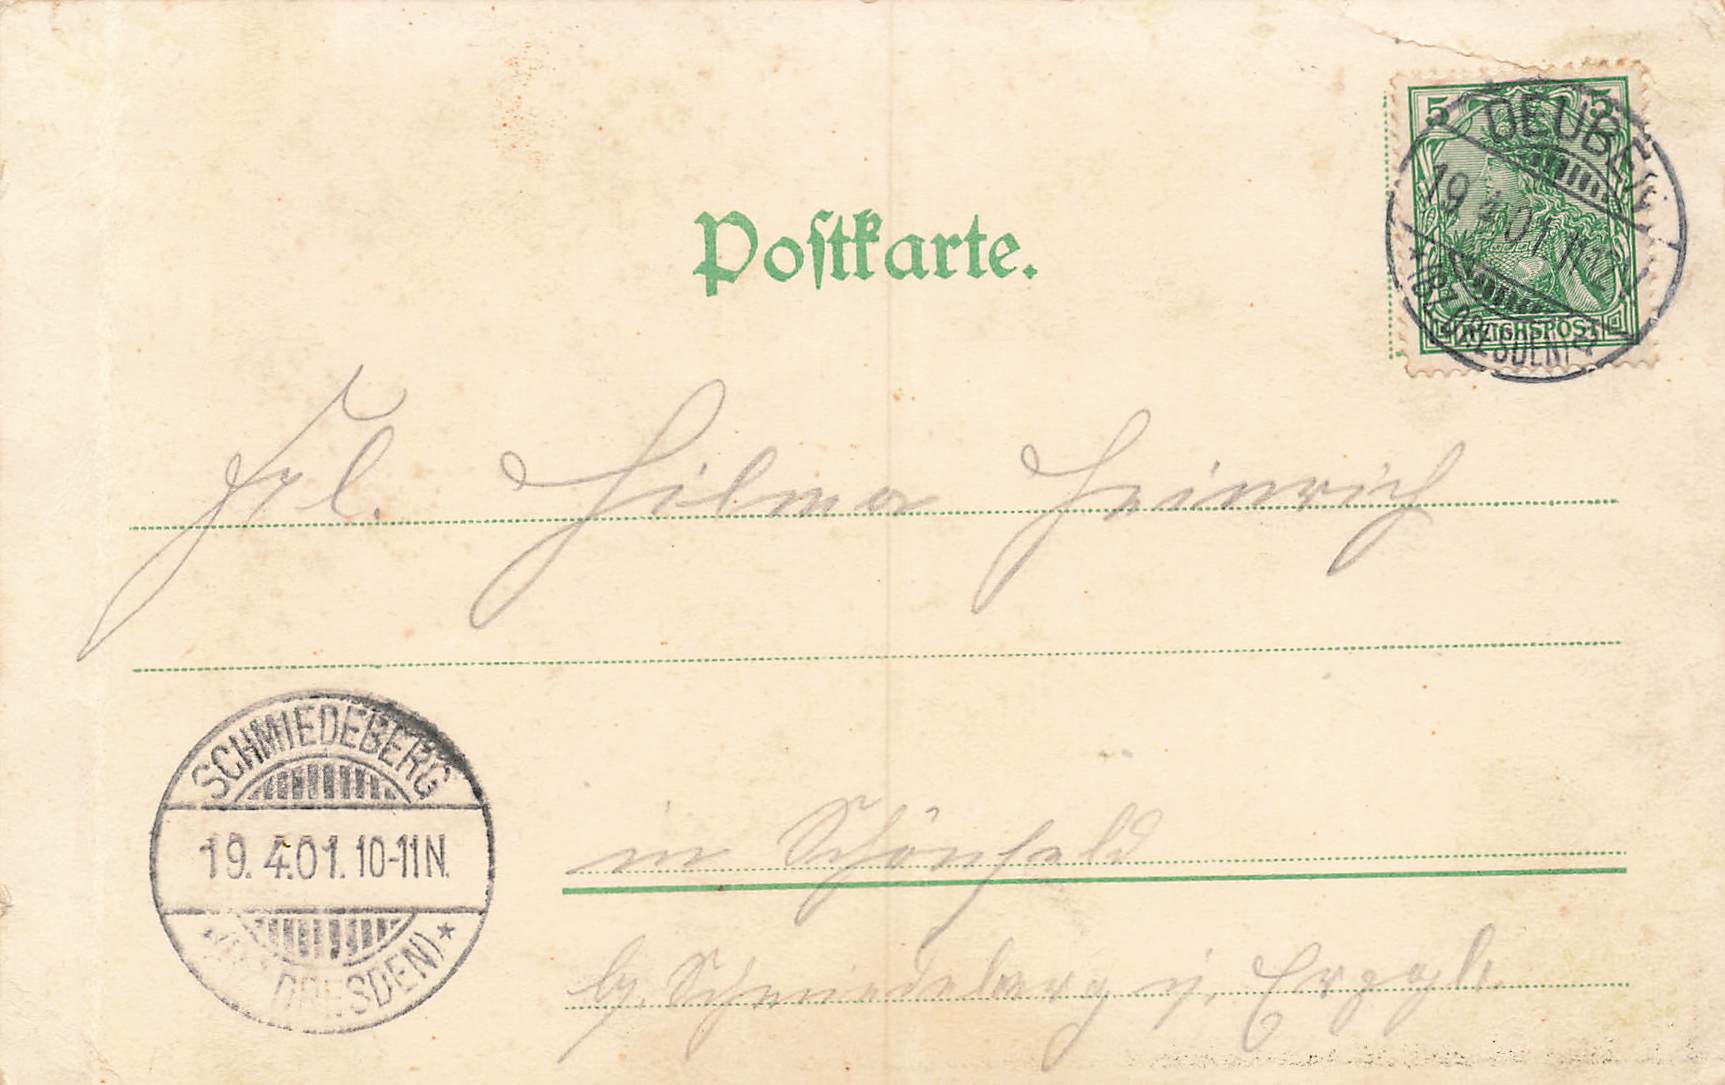 Postkarte.
5 5
REICHSPOST
DEUBEN
19 4 01 11-12
* (BZ. DRESDEN)
Frl. Hilma Heinrich
SCHMIEDEBERG
19. 4. 01. 10-11 N.
DRESDEN) *
in Schönfeld
b. Schmiedeberg i. Erzgb.